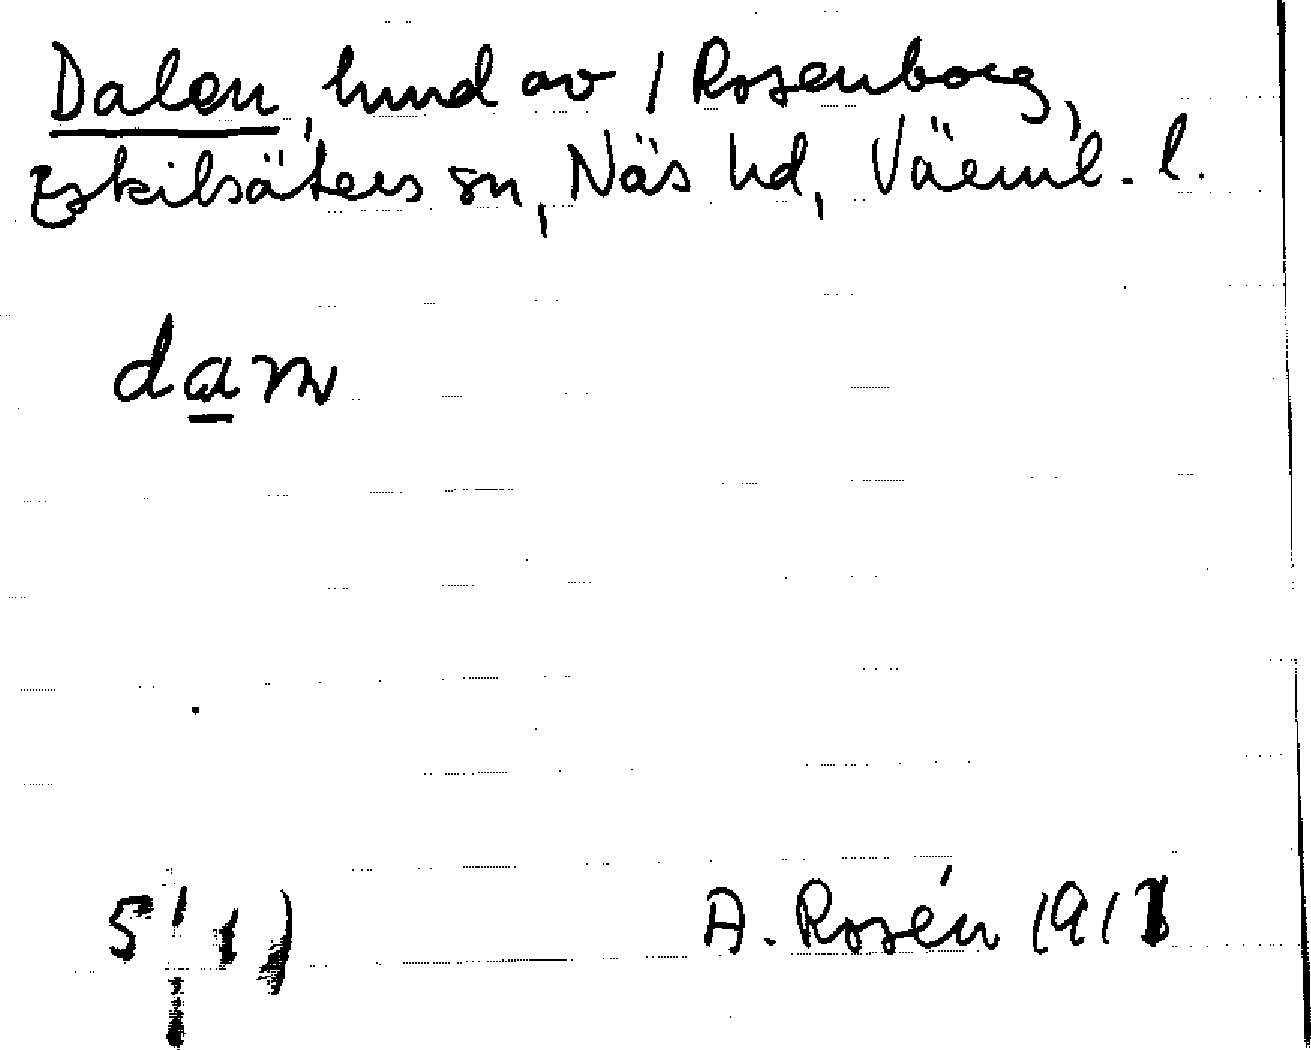 Dalen, hmd av 1 Rosenborg,
Eskilsäters sn, Näs hd, Värml. l.
A. Rosén 191